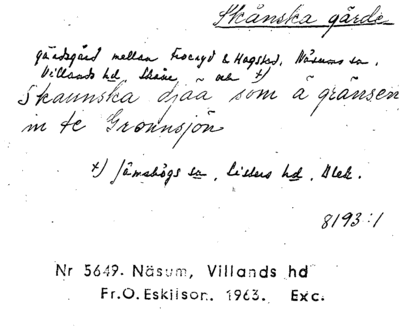 Skånska gärde
gärdsgård mellan Froeryd & Hagstad, Näsums sn,
Villands hd Skåne, och +)
Skaunska djäa som å gränsen
in te Gronnsjön
+) Jämshögs sn, Listers hd, Blek.
8193:1
Nr 5649. Näsum, Villands hd
Fr.O. Eskilson. 1963. Exc.